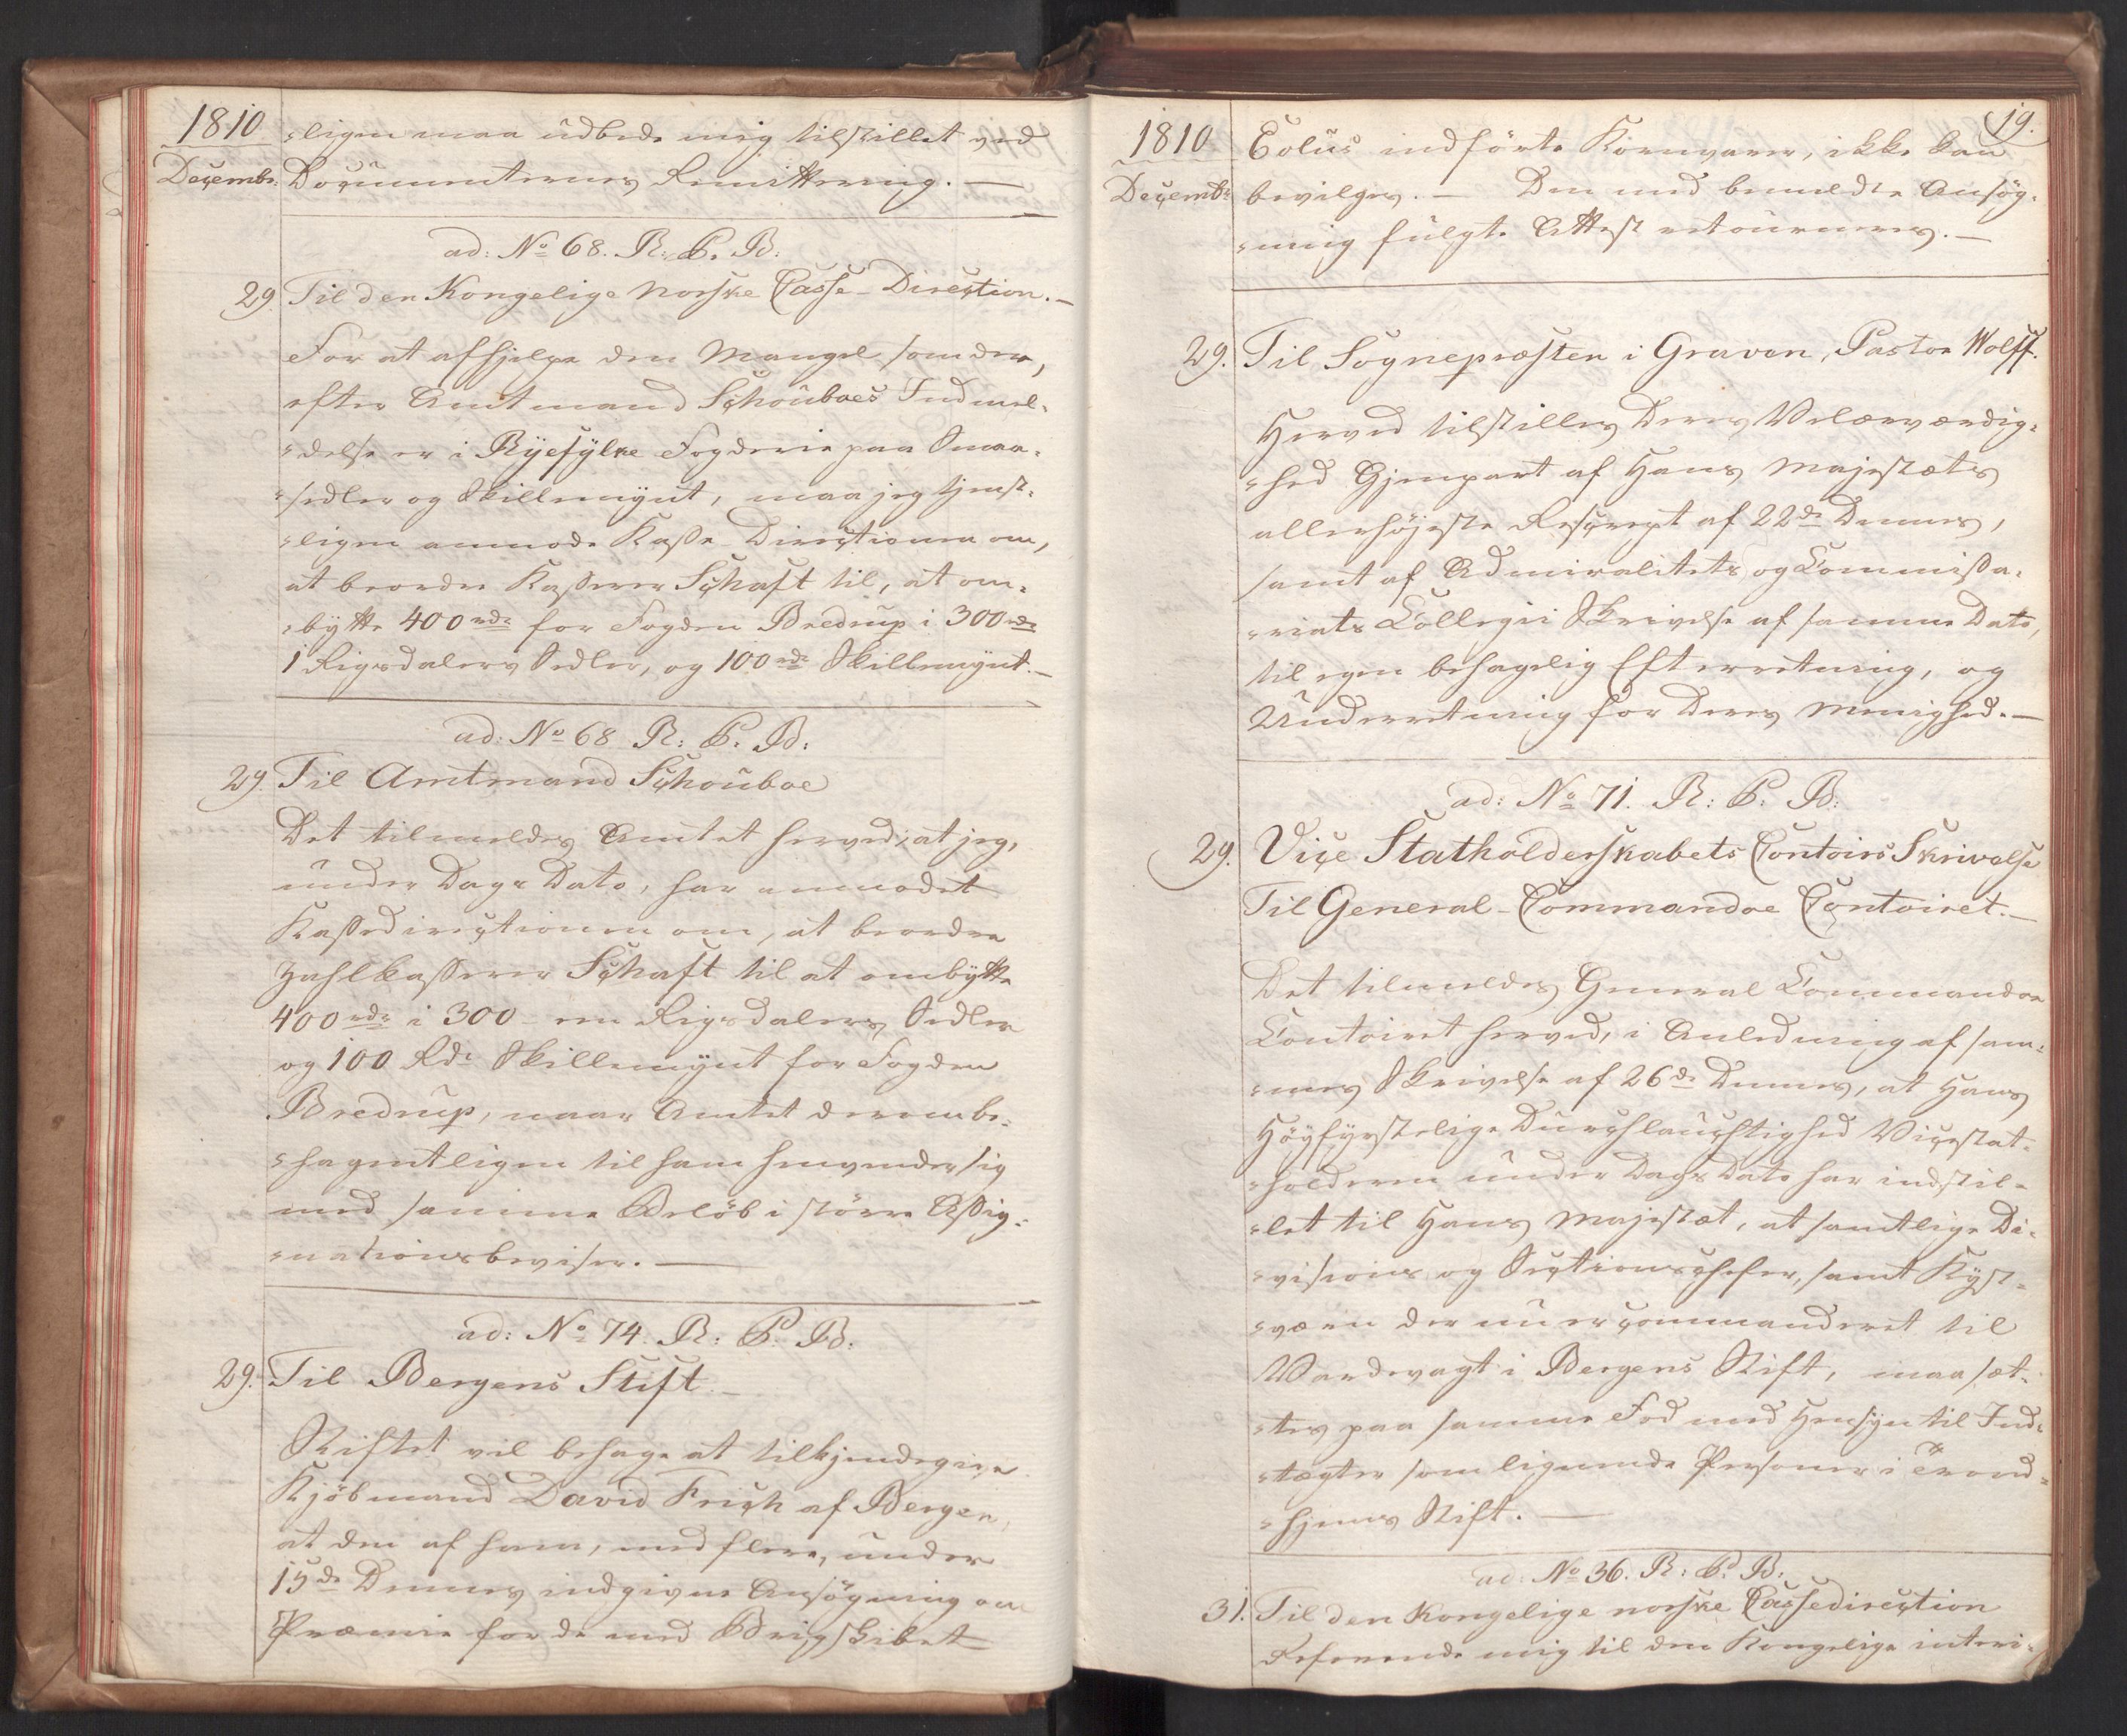 1810
Decembr:
=ligen maa udbede mig tilstillet ved
Documenternes Remittering. —
ad: No 68. R: P. B.
29. Til den Kongelige norske Casse-Direction. —
For at afhjelpe den Mangel, som der,
efter Amtmand Schouboes Indmel=
=delse er i Ryefylke Fogderie paa Smaa=
=sedler og Skillemynt, maa jeg tjenst=
=ligen anmode Kasse Directionen om,
at beordre Kasserer Schaft til, at om=
=bytte 400 rdr for Fogden Bredrup i 300 rdr
1 Rigsdalers Sedler, og 100 rdr Skillemynt. —
ad: No 68 R: P. B:
29. Til Amtmand Schouboe
Det tilmeldes Amtet herved, at jeg,
under Dags Dato, har anmodet
Kassedirectionen om, at beordre
Zahlkasserer Schaft til at ombytte
400 rdr i 300 - een Rigsdalers Sedler
og 100 Rdr Skillemynt for Fogden
Bredrup, naar Amtet derom be=
=hagentligen til ham henvender sig
med samme Beløb i større Assig=
=nationsbeviser. —
ad: No 74. R: P. B:
29. Til Bergens Stift. —
Stiftet vil behage at tilkjendegive
Kjøbmand David Frich af Bergen,
at den af ham, med flere, under
15de Dennes indgivne Ansøgning om
Præmie for de med Brigskibet
19.
1810
Decembr
Eolus indförte Kornvarer, ikke kan
bevilges. — Den med bemeldte Ansög=
=ning fulgte Attest retourneres. —
29. Til Sognepræsten i Graven, Pastor Wolff.
Herved tilstilles Deres Velærværdig=
=hed Gjenpart af Hans Majestæts
allerhöjeste Rescript af 22de Dennes,
samt af Admiralitets og Commissa=
=riats Collegii Skrivelse af samme Dato,
til egen behagelig Efterretning, og
Underretning for Deres Menighed. —
ad: No 71. R: P. B:
29. Vice Statholderskabets Contoirs Skrivelse
Til General-Commandoe Contoiret. —
Det tilmeldes General Commandoe
Contoiret herved, i Anledning af sam=
=mes Skrivelse af 26de Dennes, at Hans
Höyfyrstelige Durchlauchtighed Vicestat=
=holderen under Dags Dato har indstil=
=let til Hans Majestæt, at samtlige Di=
=visions og Sectionschefer, samt Kyst=
=værn der nu er commanderet til
Vardevagt i Bergens Stift, maa sæt=
=tes paa samme Fod med Hensyn til Ind=
=tægter som lignende Personer i Trond=
=hjems Stift. —
ad: No 36. R: P. B:
31. Til den kongelige norske Cassedirection
Refererende mig til den Kongelige interi=